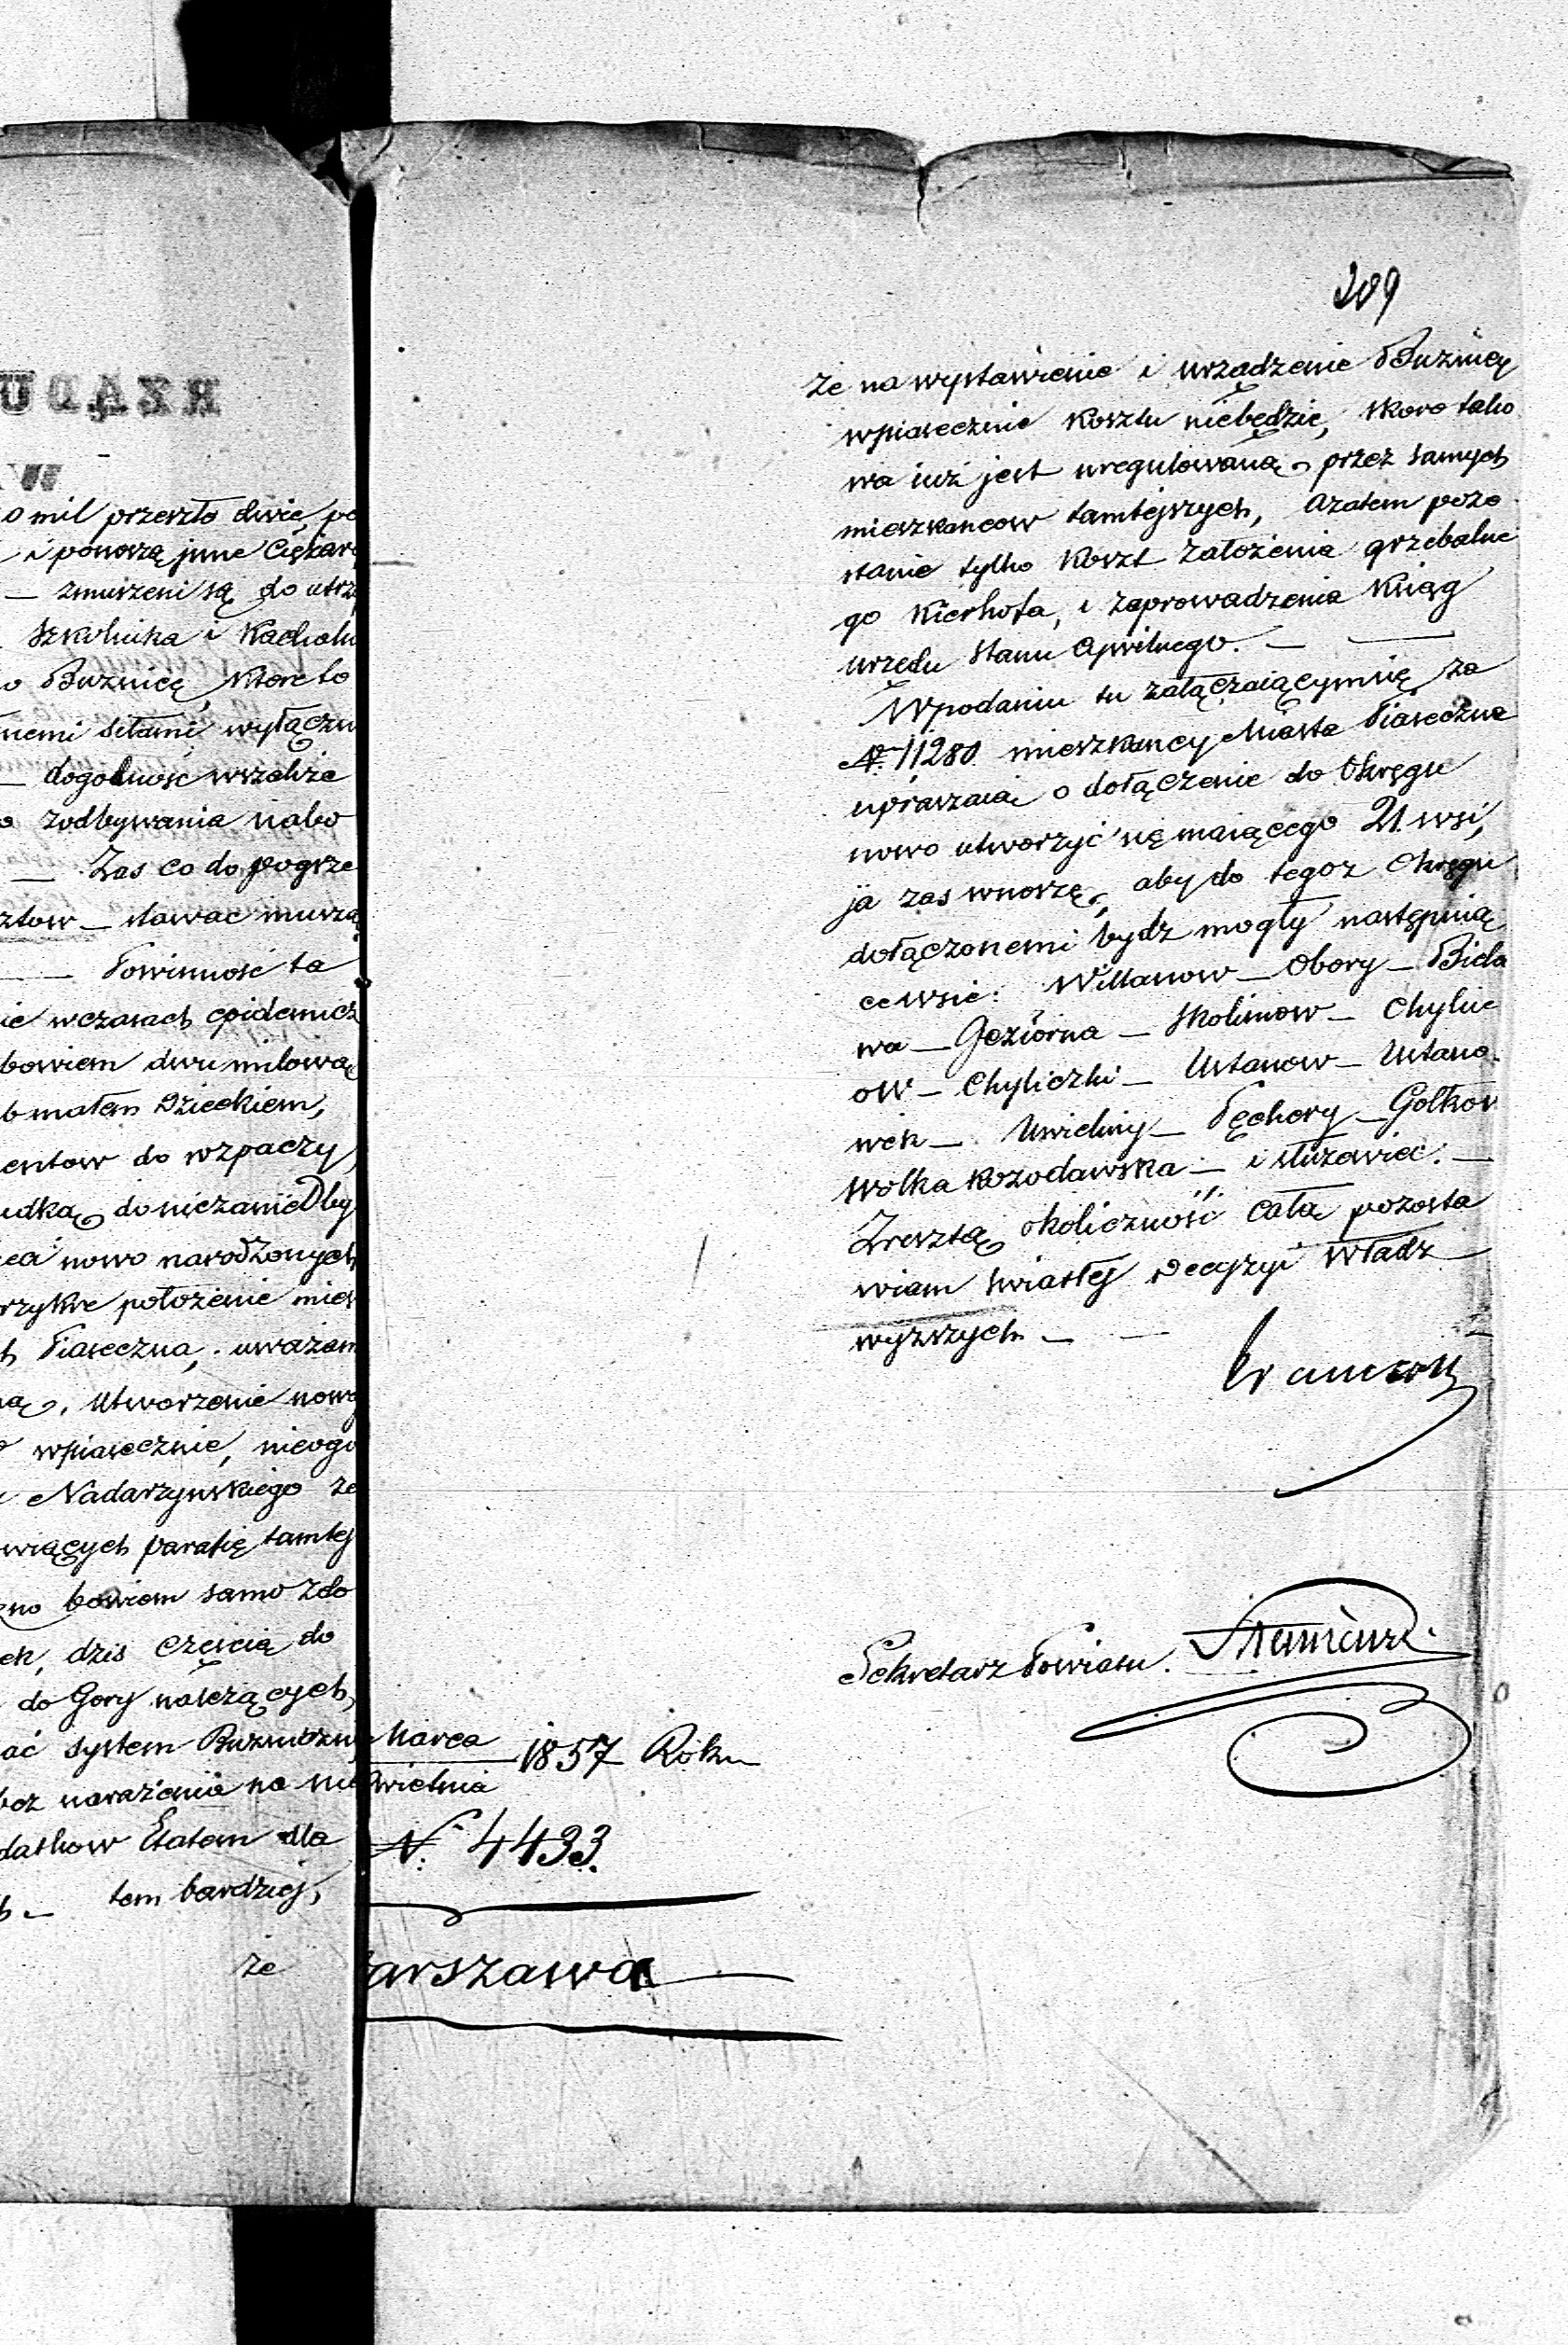 RZĄDU
W
o mil przeszło dwie, po
i ponoszą jnne Ciężar
— zmuszeni są do utrz
Szkolnika i Kachalu
o Buznicę, ktore to
nemi siłami wyłączn
— dogodność wszakże
o zodbywania nabo
— Zas co do pogrze
ztow — stawac musza
— Powinność ta
ie wczasach epidemicz
bowiem dwu milową
b małem Dzieckiem,
entow do wzpaczy
udką do niezaniedby
ea nowo narodzonych
rzykre położenie mies
h Piaseczna, uważam
ną, utworzenie nowo
wpiasecznie, nieogo
Nadarzynskiego ze
wiących parafię tamtej
zno bowiem samo zdo
ek, dzis częścią do
do Gory należących,
ać system Buzniczny
bez narażenia na nie
datkow Etatem dla
b — tem bardziej,
że
Marca
1857 Roku
Kwietnia
N. 4433.
arszawa
209
że na wystawienie i urządzenie Buznicy
wpiasecznie kosztu niebędzie, skoro tako
wa iuż jest uregulowaną przez samych
mieszkancow tamtejszych, azatem pozo
stanie tylko koszt założenia grzebalne
go Kierhofa, i zaprowadzenia Ksiąg
urzędu Stanu Cywilnego. —
Wpodaniu tu załączaiącymsię za
N. 11280 mieszkancy Miasta Piaseczna
upraszaią o dołączenie do Okręgu
nowo utworzyć się maiącego 21. wsi,
ja zas wnoszę, aby do tegoz Okręgu
dołączonemi bydz mogły następuią
ce wsie: Willanow — Obory — Biela
wa — Jeziorna — Skolimow — Chylic
ow — Chyliczki — Ustanow — Ustano
wek — Uwieliny — Pęchery — Gołkow
Wolka Kozodawska — i służewiec. —
Zresztą okoliczność całą pozosta
wiam Swiatłej Decyzyi Władz
wyższych —
Sekretarz Powiatu.